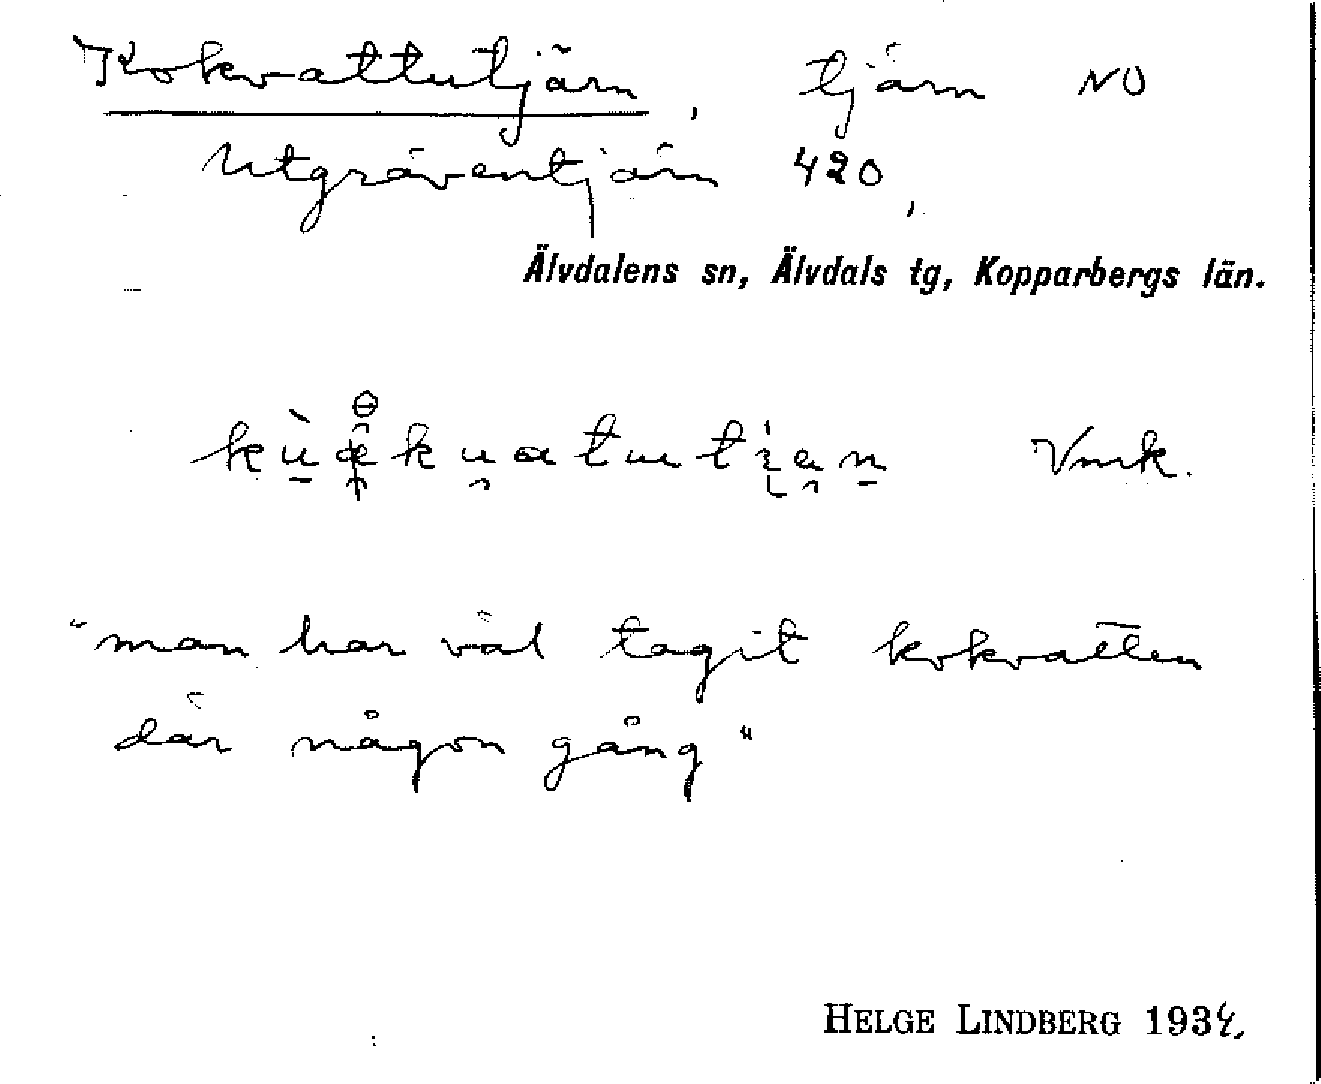 Kokvattutjärn, tjärn NO
Utgräventjärn 420,
Älvdalens sn, Älvdals tg, Kopparbergs län.
Vmk.
"man har väl tagit kokvatten
där någon gång"
HELGE LINDBERG 1934.